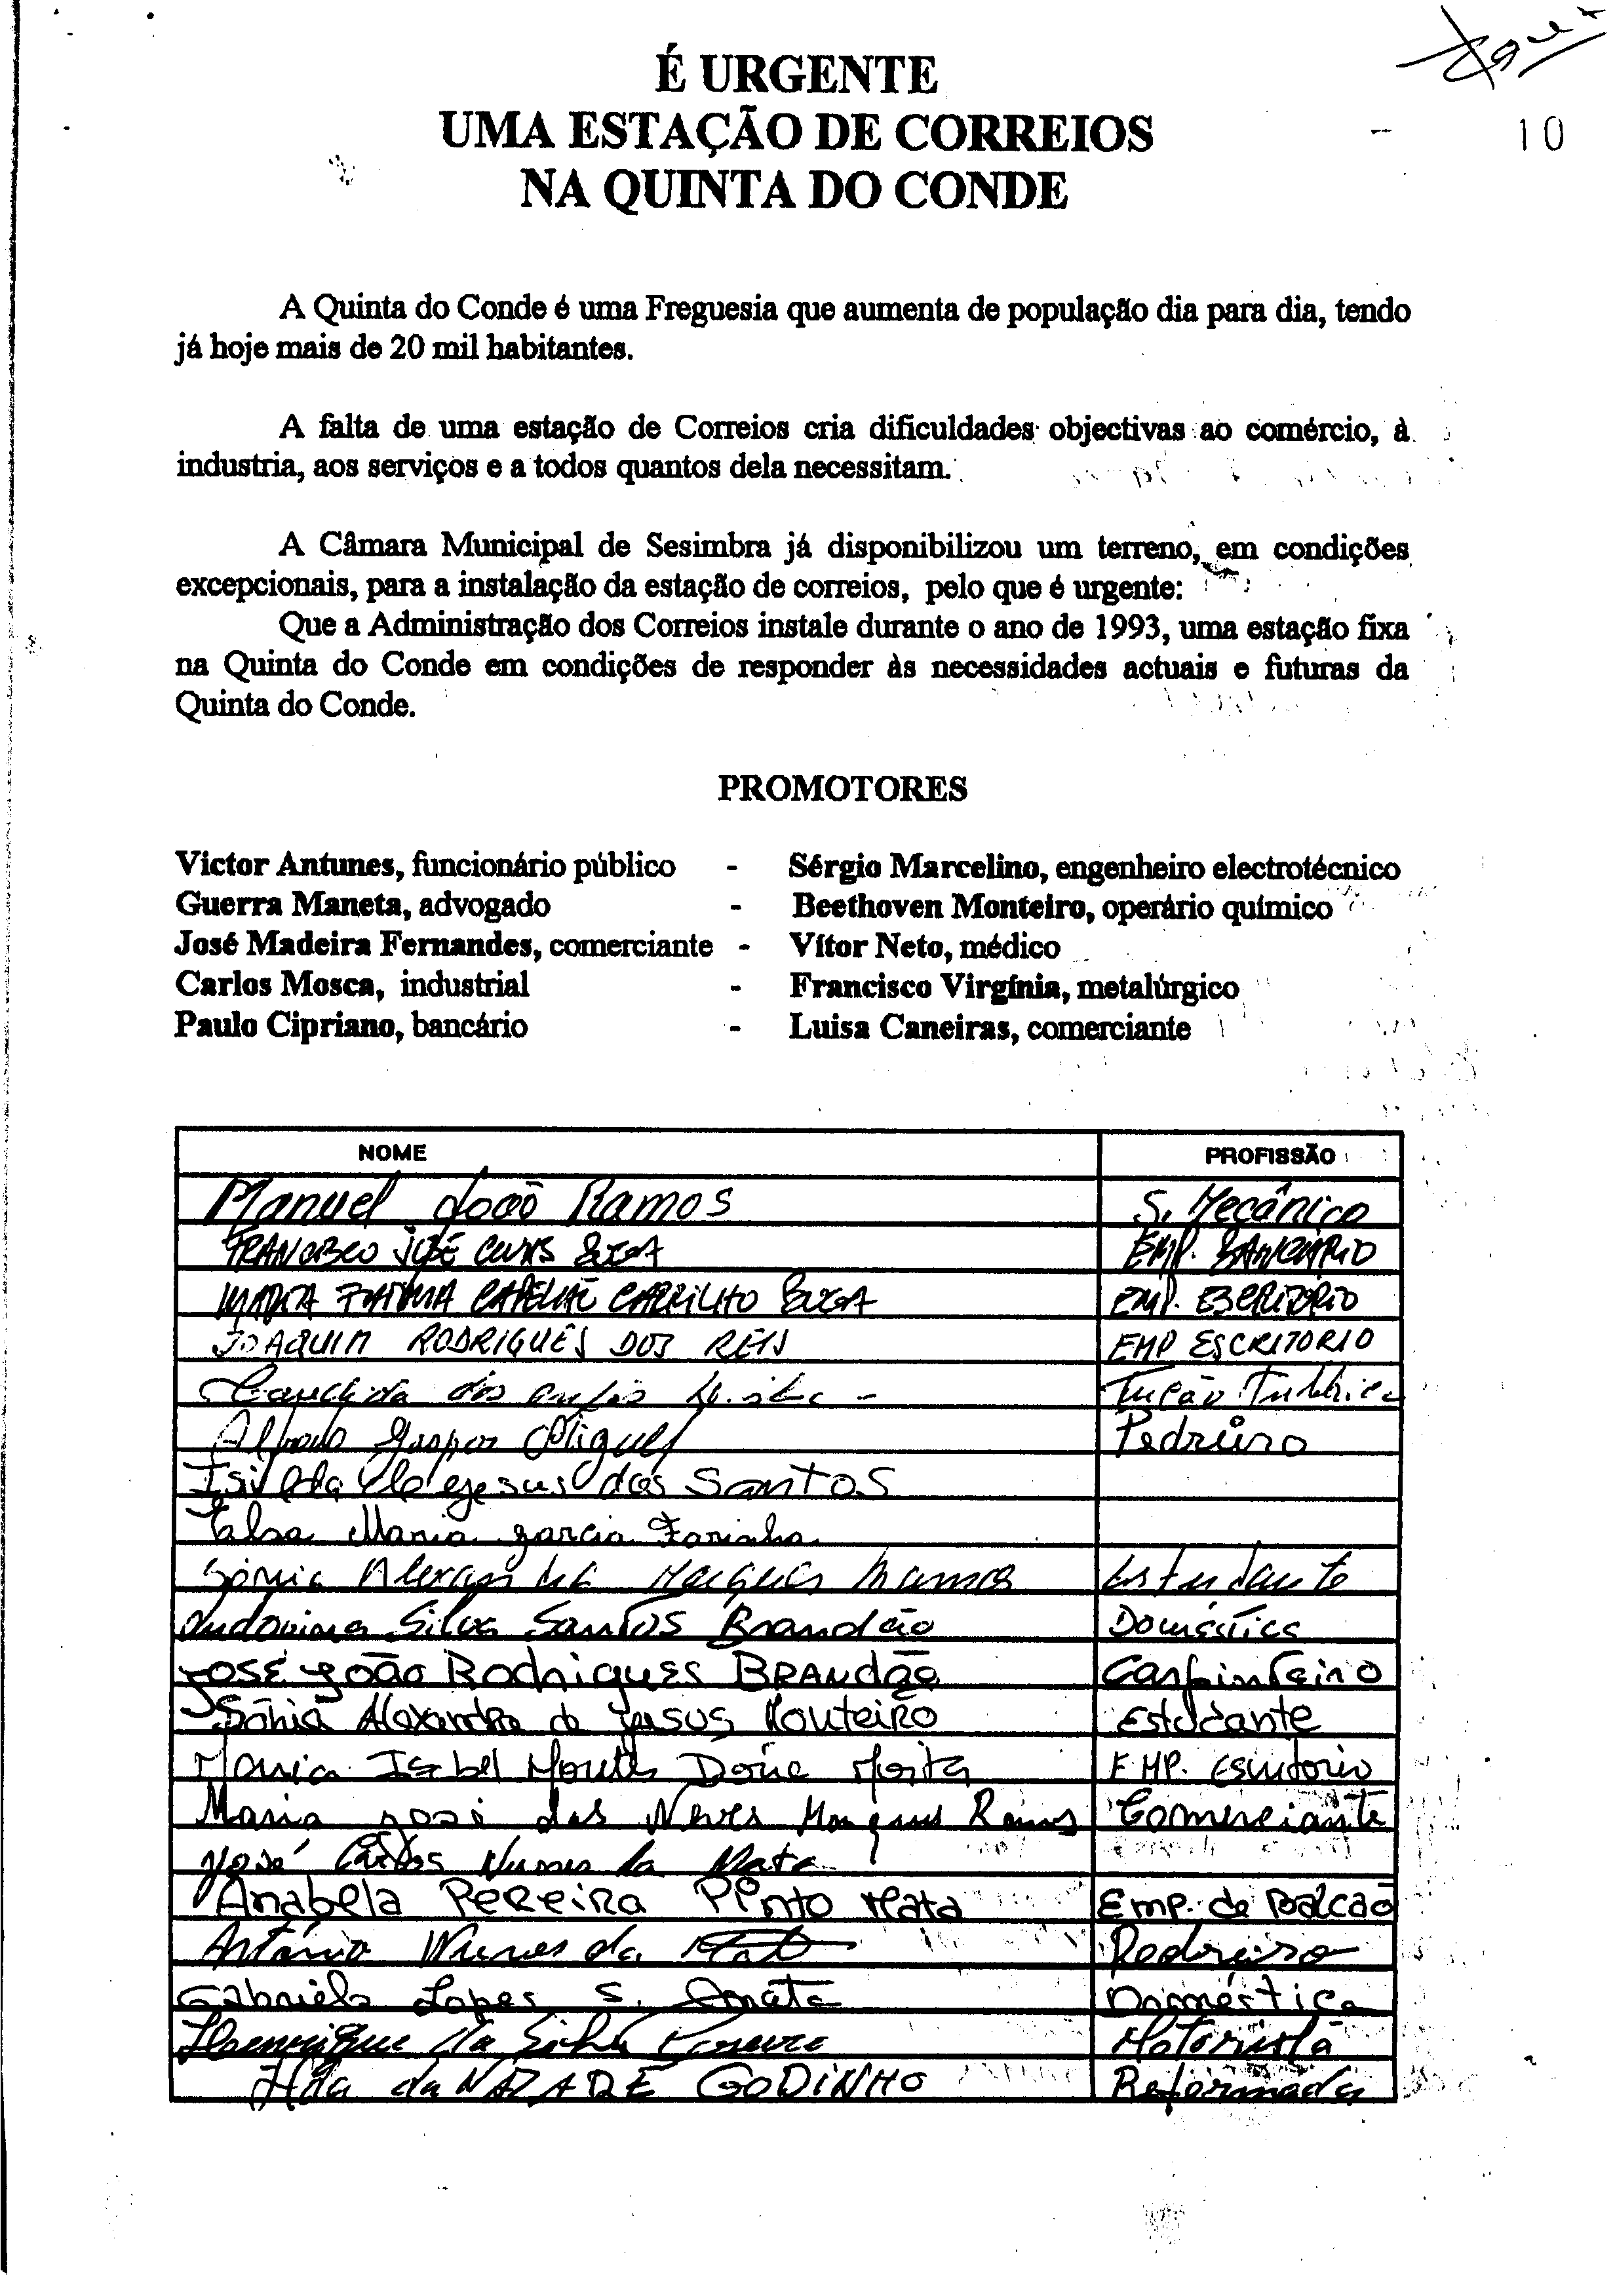 10
É URGENTE
UMA ESTAÇÃO DE CORREIOS
NA QUINTA DO CONDE
A Quinta do Conde é uma Freguesia que aumenta de população dia para dia, tendo
já hoje mais de 20 mil habitantes.
A falta de uma estação de Correios cria dificuldades objectivas ao comércio, à
industria, aos serviços e a todos quantos dela necessitam.
A Câmara Municipal de Sesimbra já disponibilizou um terreno, em condições
excepcionais, para a instalação da estação de correios, pelo que é urgente:
Que a Administração dos Correios instale durante o ano de 1993, uma estação fixa
na Quinta do Conde em condições de responder às necessidades actuais e futuras da
Quinta do Conde.
PROMOTORES
Victor Antunes, funcionário público - Sérgio Marcelino, engenheiro electrotécnico
Guerra Maneta, advogado - Beethoven Monteiro, operário químico
José Madeira Fernandes, comerciante - Vítor Neto, médico
Carlos Mosca, industrial - Francisco Virgínia, metalúrgico
Paulo Cipriano, bancário - Luisa Caneiras, comerciante
NOME PROFISSÃO
Manuel João Ramos S. Mecânico
FRANCISCO JOSÉ EMP. BANCARIO
MARIA FATIMA CARRILHO EMP. ESCRITORIO
JOAQUIM RODRIGUES DOS REIS EMP ESCRITORIO
dos
Gaspar Miguel Pedreiro
de Jesus dos Santos
Elsa Maria Garcia Farinha
Sónia Marques Ramos Estudante
Ludovina Silva Santos Brandão Doméstica
José João Rodrigues BRANdão Carpinteiro
Sónia Alexandra de Jesus Monteiro Estudante
Maria Isabel EMP. Escritorio
Maria José das Neves Marques Ramos Comerciante
José Carlos Nunes da Mata
Anabela Pereira Pinto Mata Emp. de Balcão
António Nunes da Mata Pedreiro
Gabriela Lopes S. Doméstica
Henrique da Silva Motorista
da NAZARÉ GODINHO Reformada